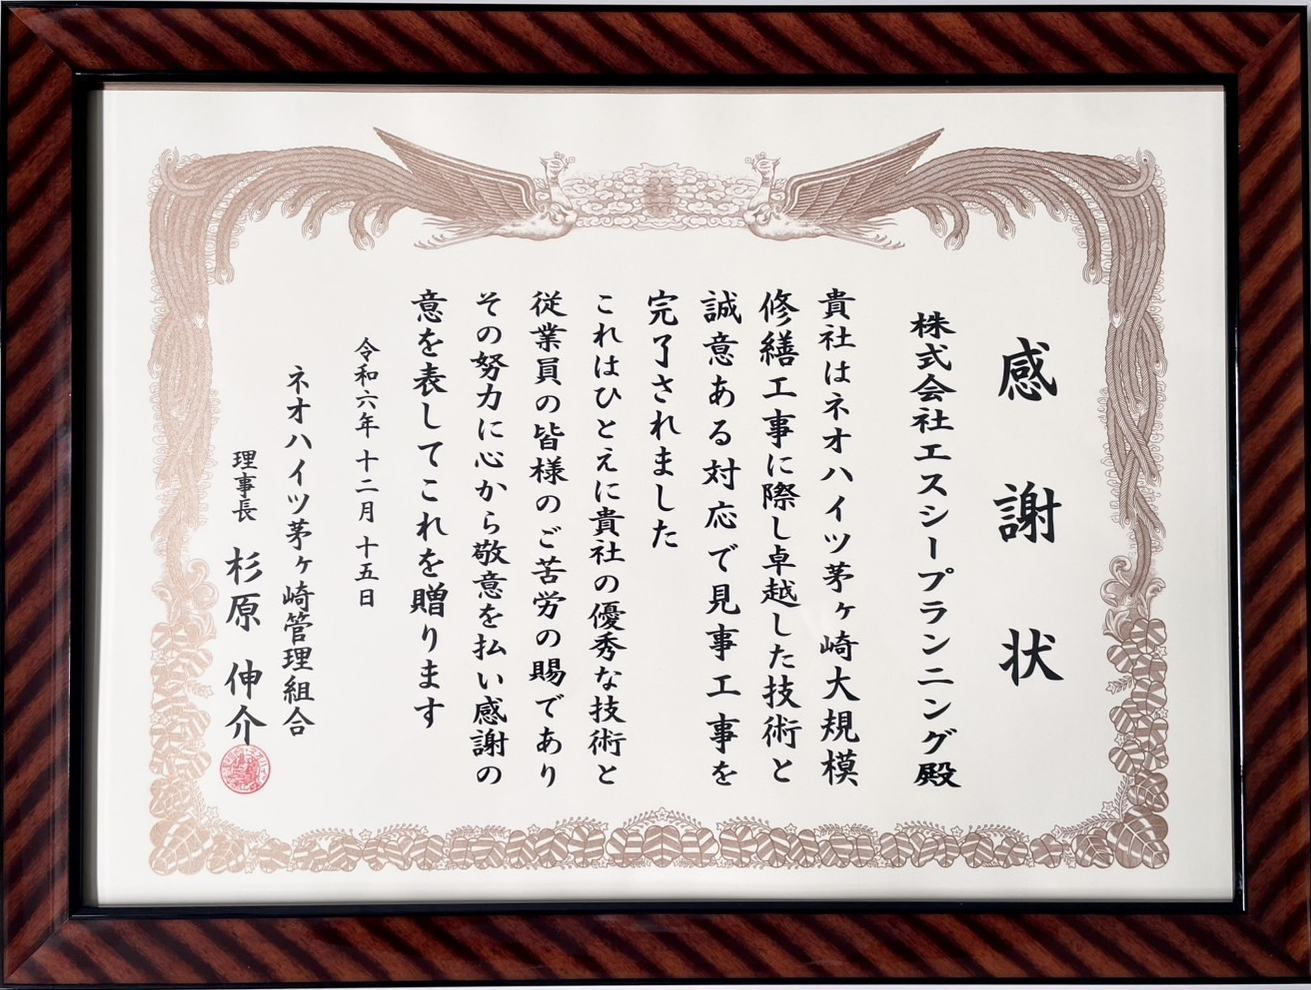 感謝状
株式会社エスシープランニング殿
貴社はネオハイツ茅ヶ崎大規模
修繕工事に際し卓越した技術と
誠意ある対応で見事工事を
完了されました
これはひとえに貴社の優秀な技術と
従業員の皆様のご苦労の賜であり
その努力に心から敬意を払い感謝の
意を表してこれを贈ります
令和六年十二月十五日
ネオハイツ茅ヶ崎管理組合
理事長 杉原 伸介